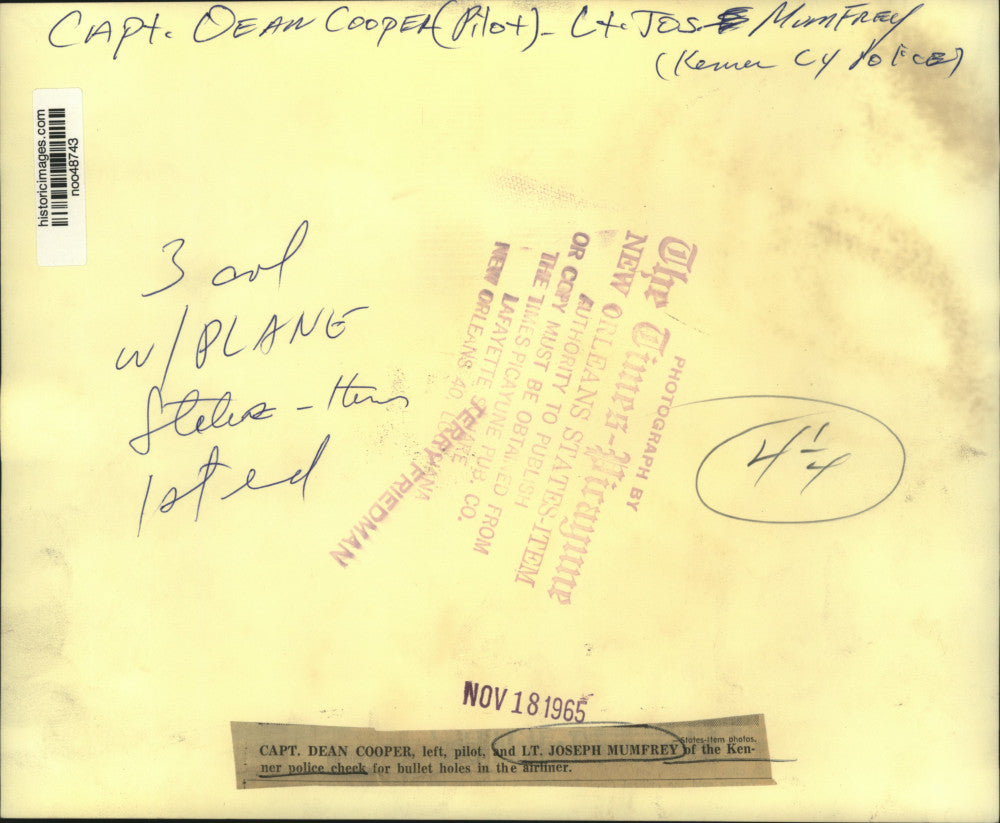 CAPT. DEAN COOPER (Pilot) - Lt. JOS. MUMFREY
(Kenner Cy Police)
historicimages.com
noo48743
3 col
W/PLANE
States-Item
1st ed
4 1/4
PHOTOGRAPH BY
The Times-Picayune
NEW ORLEANS STATES-ITEM
AUTHORITY TO PUBLISH
OR COPY MUST BE OBTAINED FROM
THE TIMES PICAYUNE PUB. CO.
LAFAYETTE SQUARE
NEW ORLEANS 40, LOUISIANA
TERRY FRIEDMAN
NOV 18 1965
States-Item photos.
CAPT. DEAN COOPER, left, pilot, and LT. JOSEPH MUMFREY of the Ken-
ner police check for bullet holes in the airliner.